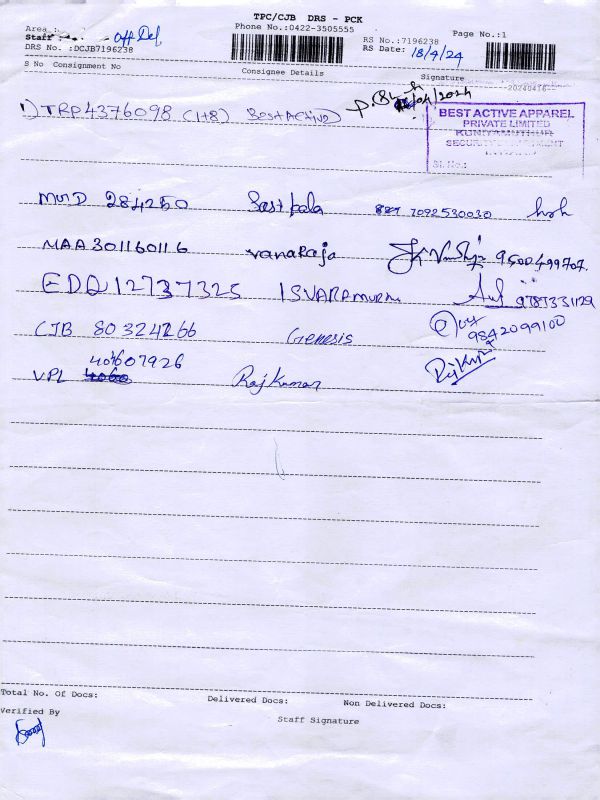 TPC/CJB DRS - PCK
Phone No.:0422-3505555
Page No.:1
Area :
Staff
off Del
RS No.:7196238
DRS No. :DCJB7196238
RS Date: 18/4/24
S No Consignment No Consignee Details Signature
20240416
1) TRP4376098 (1+8) Best Active
BEST ACTIVE APPAREL
PRIVATE LIMITED
KUNIYAMUTHUR
SECURITY DEPARTMENT
Sl. No.:
MUD 284250 Sast pala 7092530030
MAA301160116 vanaraja 9500499707
EDQ12737325 ISVARAMURTHI 9787331129
CJB 80324266 Genesis 9842099100
40607926
VPL Raj Kumar Rajkumar
Total No. Of Docs: Delivered Docs: Non Delivered Docs:
Verified By Staff Signature